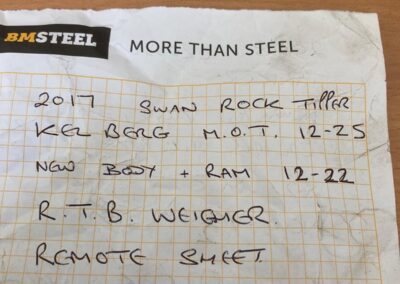 BMSTEEL MORE THAN STEEL
2017 SWAN ROCK TIPPER
KEL BERG M.O.T. 12-25
NEW BODY + RAM 12-22
R.T.B. WEIGHER.
REMOTE SHEET.